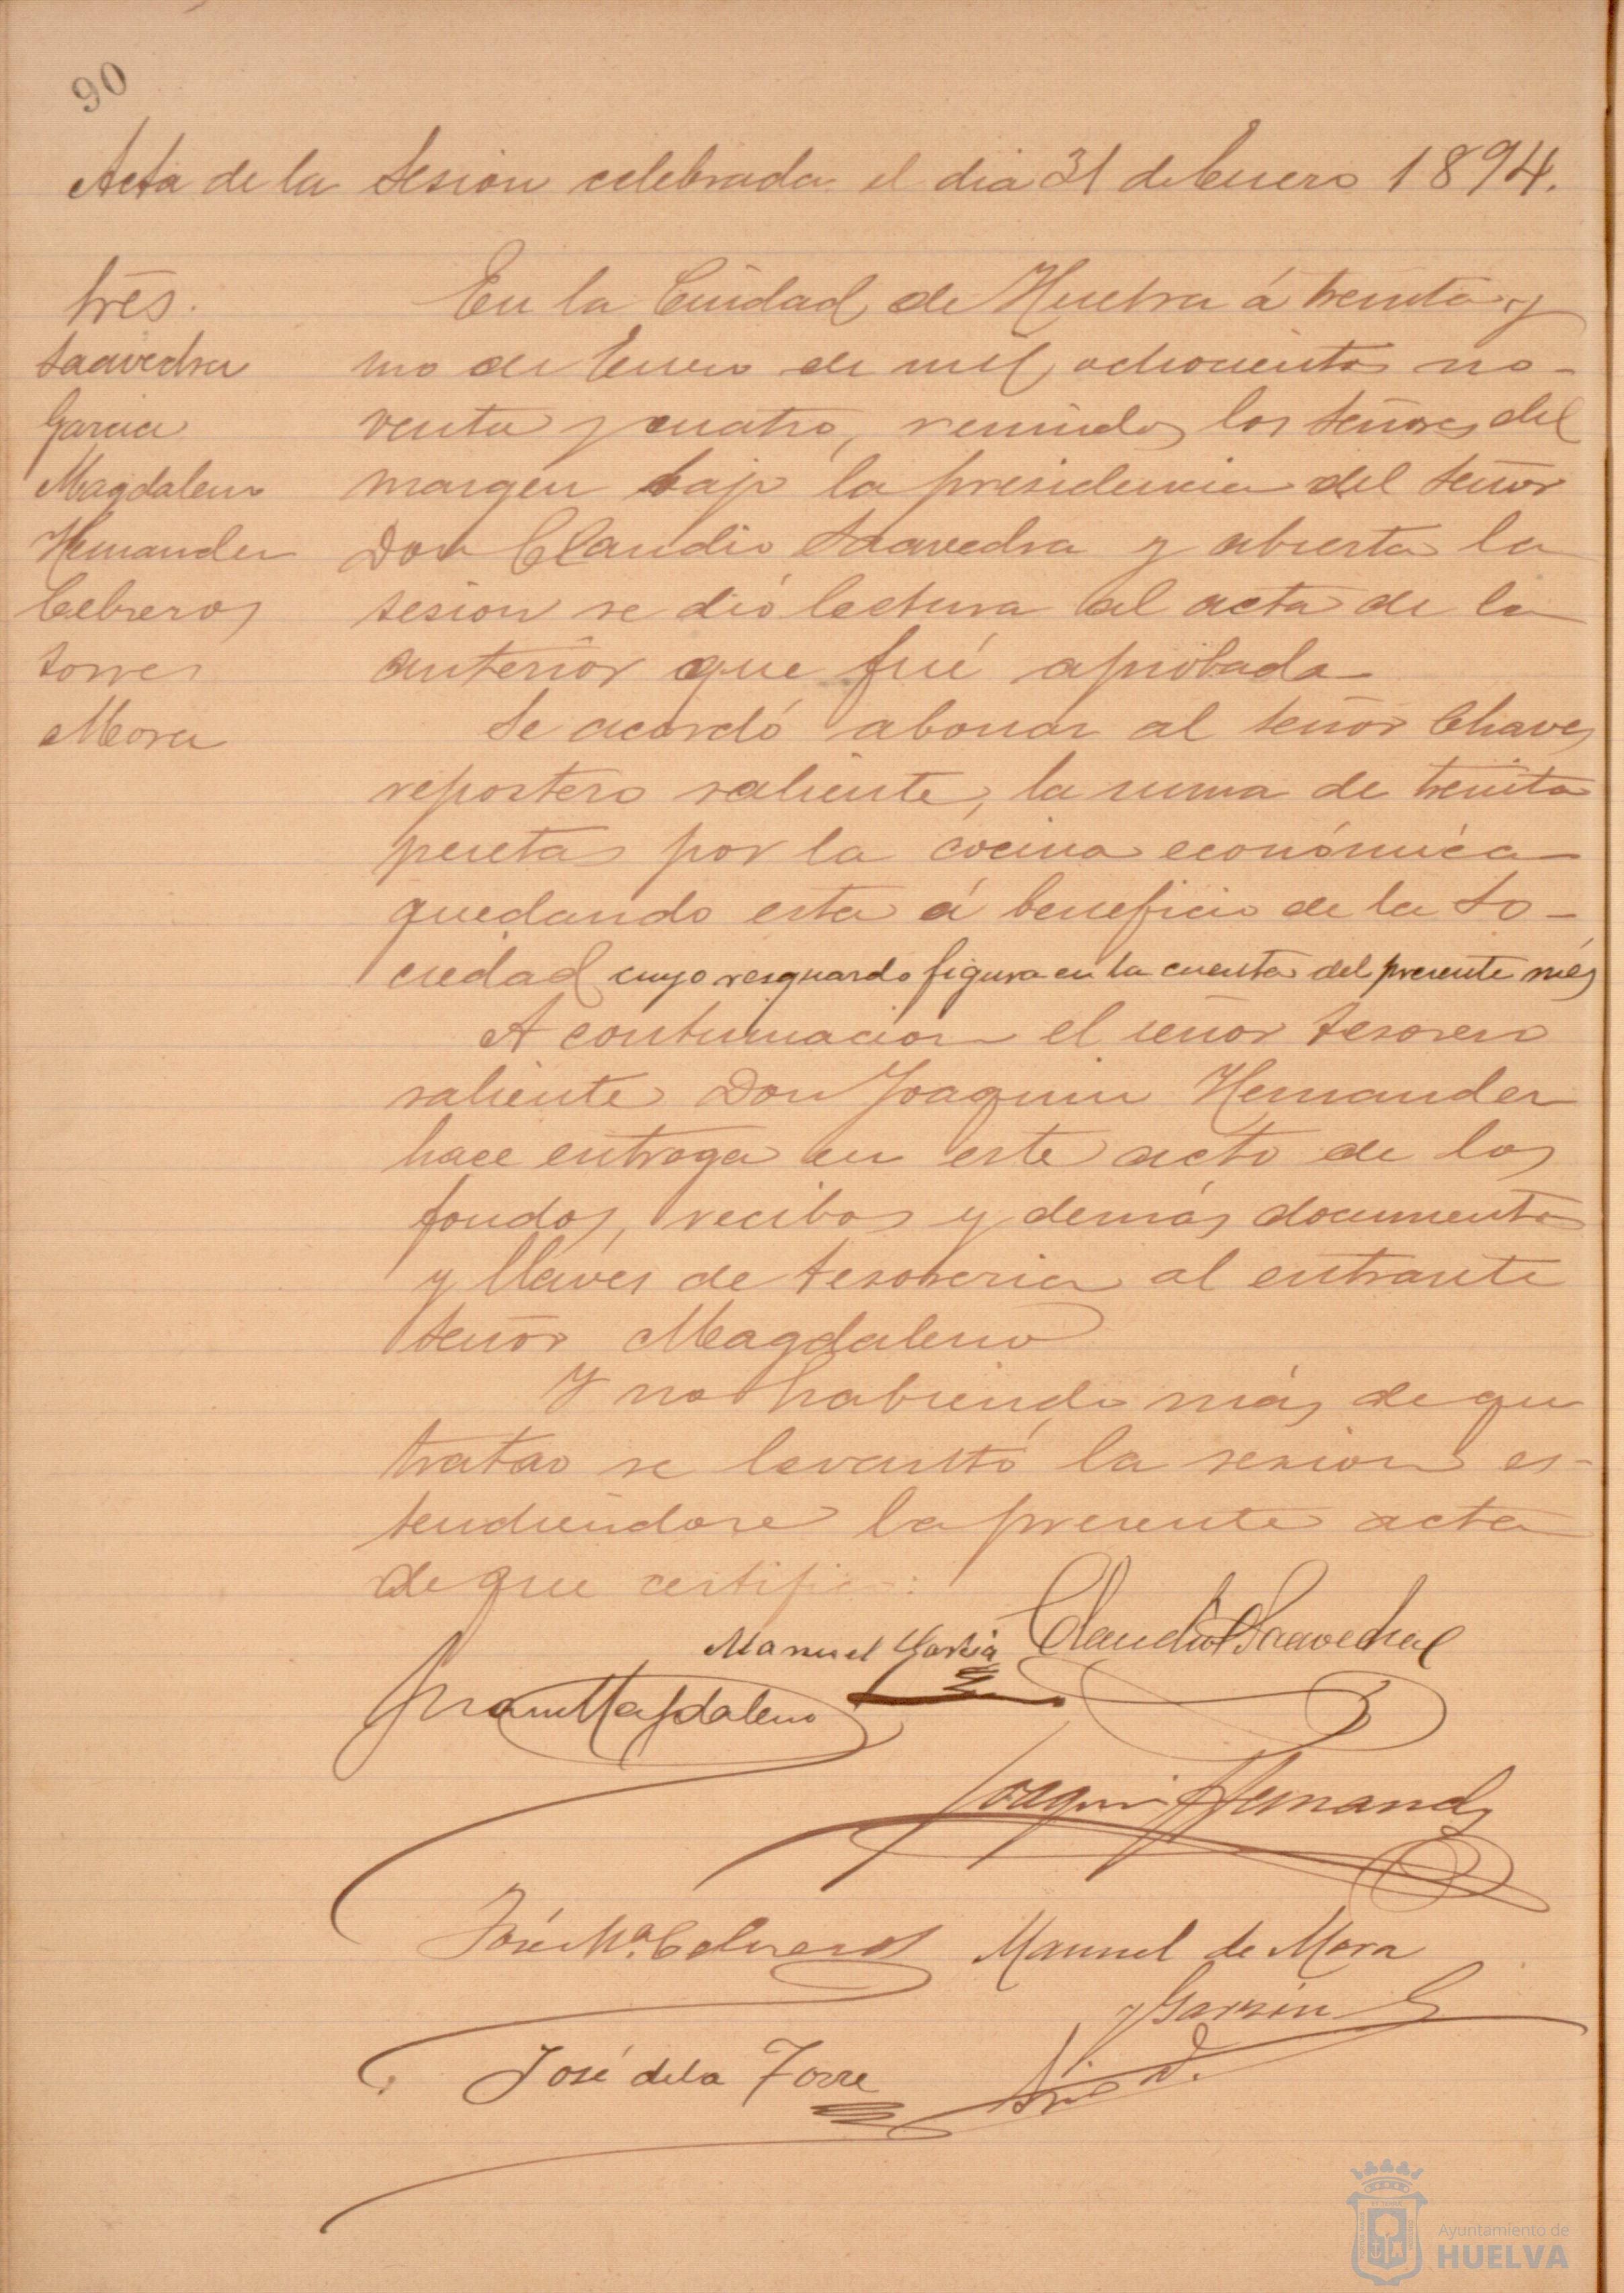 90
Acta de la Sesion celebrada el dia 31 de Enero 1894.
Sres.
Saavedra
Garcia
Magdaleno
Hernandez
Cebreros
Torres
Mora
En la Ciudad de Huelva á treinta y
uno de Enero de mil ochocientos no-
venta y cuatro, reunidos los Señores del
margen bajo la presidencia del Señor
Don Claudio Saavedra y abierta la
sesion se dió lectura al acta de la
anterior que fué aprobada
Se acordó abonar al Señor Chaves
repostero saliente, la suma de treinta
pesetas por la cocina económica
quedando esta á beneficio de la So-
ciedad cuyo resguardo figura en la cuenta del presente més
A continuacion el señor tesorero
saliente Don Joaquin Hernandez
hace entrega en este acto de los
fondos, recibos y demás documentos
y llaves de tesoreria al entrante
Señor Magdaleno
Y no habiendo más de que
tratar se levantó la sesion es-
tendiendose la presente acta
de que certifico:
Manuel Garcia Claudio Saavedra
Juan Magdaleno
Joaquin Hernandz
José Mª Cebreros Manuel de Mora
y Garzon
José de la Torre
Srio
Ayuntamiento de
HUELVA